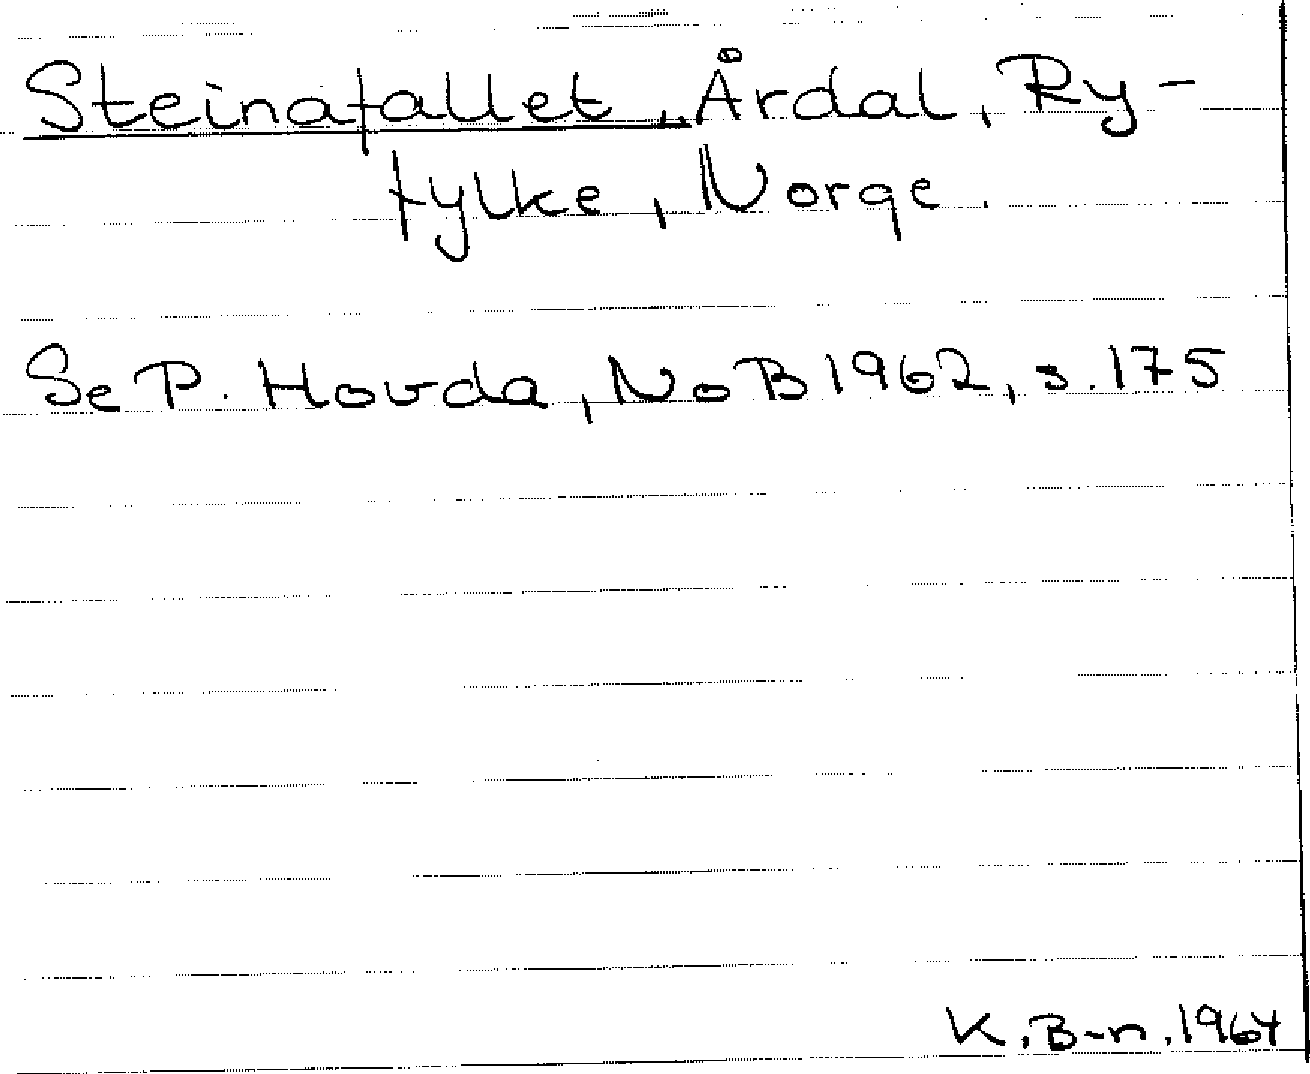 Steinafallet, Årdal, Ry-
fylke, Norge.
Se P. Hovda, NoB 1962, s. 175
K. B-n. 1964